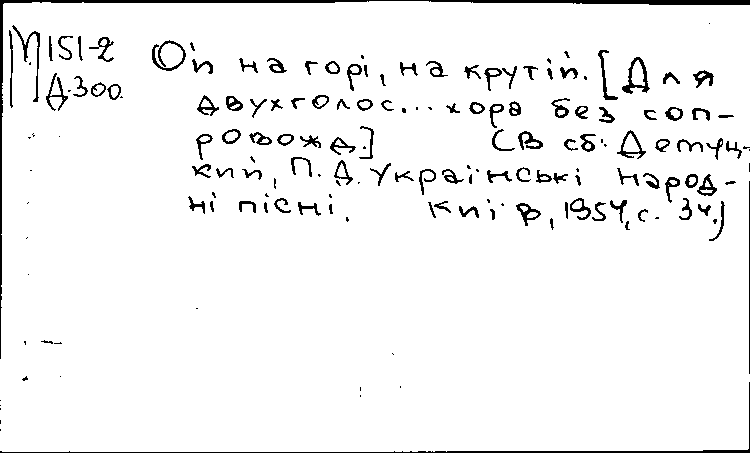 М151-2
Д.300.
Ой на горі, на крутій. [Для
двухголос... хора без соп-
ровожд.] (В сб: Демуц-
кий, П. Д. Українські народ-
ні пісні. Київ, 1954, с. 34.)